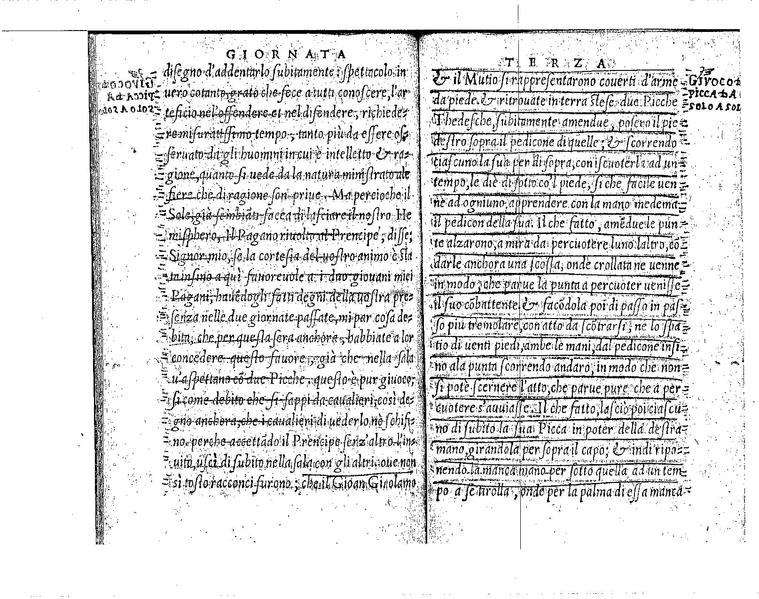 GIORNATA
disegno d'addentarlo subitamente i spettacolo in
uero cotanto grato che fece a tutti conoscere, l'ar
teficio nel'offendere et nel difendere, richiede-
re misuratissimo tempo, tanto più da essere os-
seruato da gli huomini in cui è intelletto & ra-
gione, quanto si uede da la natura ministrato ale
fiere che di ragione son priue. Ma percioche il
Sole, già sembiāti facea di lasciare il nostro He
misphero, Il Pagano riuolto al Prencipe, disse;
Signor mio, se la cortesia del uostro animo è sta
ta insino a quì fauoreuole a i duo giouani miei
Pagani, hauēdogli fatti degni della uostra pre-
senza nelle due giornate passate, mi par cosa de-
bita, che per questa sera anchora, habbiate a lor
concedere questo fauore, già che nella sala
u'aspettano cō due Picche, questo è pur giuoco,
si come debito che si sappi da caualieri, così de-
gno anchora, che i caualieri di uederlo nō schifi-
no. perche accettādo il Prencipe senz'altro l'in-
uito, uscì di subito nella sala con gli altri: oue non
si tosto racconci furono; che il Gioan Girolamo
TERZA
GIVOCO
PICCA DA
SOLO A SOL
& il Mutio si rappresentarono couerti d'arme
da piede, & ritrouate in terra stese due Picche
Thedesche, subitamente amendue, posero il pie
destro sopra il pedicone di quelle; & scorrendo
ciascuno la sua per di sopra, con iscuoterla ad un
tempo, le diè di sotto co'l piede, si che facile uen
ne ad ogniuno, apprendere con la mano medema
il pedicon della sua. Il che fatto, amēdue le pun
te alzarono, a mira da percuotere luno laltro, cō
darle anchora una scossa, onde crollata ne uenne
in modo, che parue la punta a percuoter uenisse
il suo cōbattente. & facēdola poi di passo in pas-
so più tremolare, con atto da scōtrarsi; ne lo spa
tio di uenti piedi, ambe le mani, dal pedicone insi
no ala punta scorrendo andarō, in modo che non
si potè scernere l'atto, che parue pure che a per
cuotere s'auuiasse. Il che fatto, lasciò poi ciascu
no di subito la sua Picca in poter della destra
mano, girandola per sopra il capo; & indi ripo-
nendo la manca mano per sotto quella ad un tem
po a se tirolla, onde per la palma di essa manca